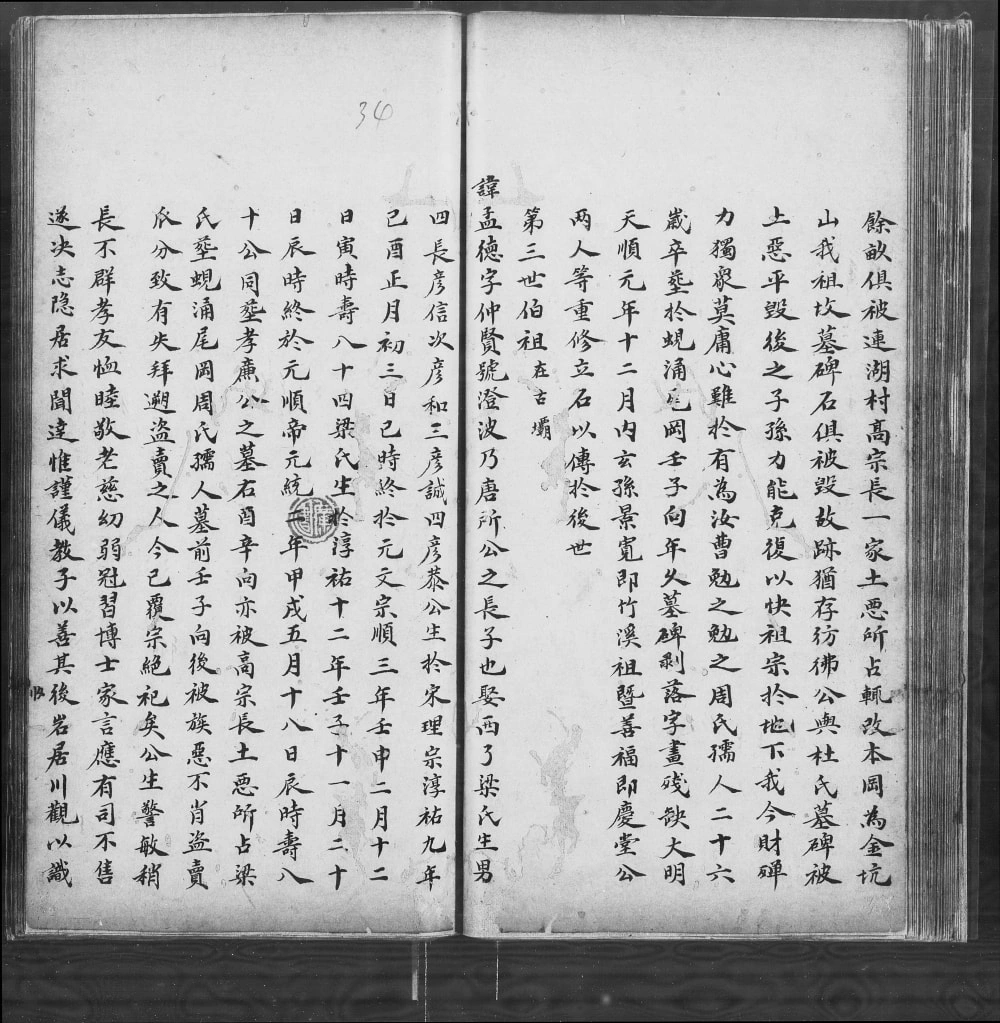 餘畝俱被連湖村高宗長一家土悪所占輒改本岡為金坑
山我祖坟墓碑石俱被毀故跡猶存彷彿公與杜氏墓碑被
上惡平毀後之子孫力能克復以快祖宗於地下我今財殫
力獨衆莫庸心雖於有為汝曹勉之勉之周氏孺人二十六
嵗卒塟於蜆涌尾岡壬子向年久墓碑剝落字畫残缺大明
天順元年十二月内玄孫景寛即竹溪祖暨善福即慶堂公
两人等重修立石以傳於後世
第三世伯祖在古壩
諱孟德字仲賢號澄波乃唐所公之長子也娶西了梁氏生男
四長彦信次彦和三彦誠四彦恭公生於宋理宗淳祐九年
己酉正月初三日巳時終於元文宗順三年壬申二月十二
日寅時壽八十四梁氏生於淳祐十二年壬子十一月二十
日辰時終於元順帝元統二年甲戌五月十八日辰時壽八
十公同塟孝廉公之墓右酉辛向亦被高宗長土悪所占梁
氏塟蜆涌尾岡周氏孺人墓前壬子向後被族悪不肖盗賣
瓜分致有失拜遡盗賣之人今已覆宗絕祀矣公生警敏稍
長不群孝友恤睦敬老慈幼弱冠習博士家言應有司不售
遂决志隐居求聞達惟謹儀教子以善其後岩居川觀以識
34